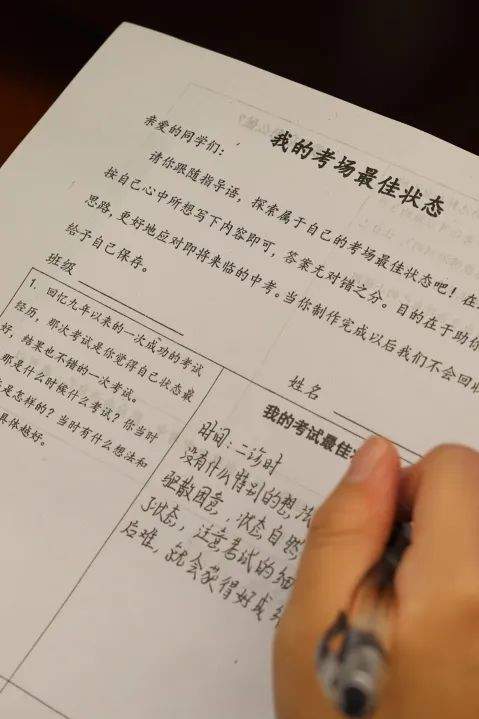 我的考场最佳状态
亲爱的同学们：
请你跟随指导语，探索属于自己的考场最佳状态吧！在
按自己心中所想写下内容即可，答案无对错之分。目的在于助你
思路，更好地应对即将来临的中考。当你制作完成以后我们不会回收
给予自己保存。
班级
姓名
1. 回忆九年以来的一次成功的考试
经历，那次考试是你觉得自己状态最
好，结果也不错的一次考试。
那是什么时候什么考试？你当时
是怎样的？当时有什么想法和
具体越好。
我的考试最佳
时间：二诊时
没有什么特别的想法
驱散困意，状态自然
了状态，注意考试的细
后难，就会获得好成绩